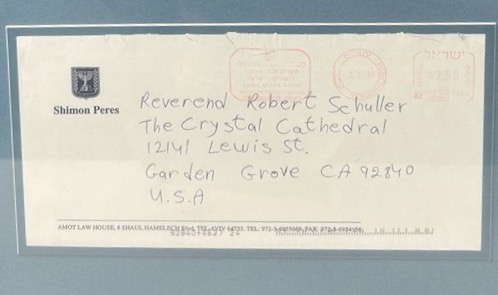 ישראל
Shimon Peres
Reverend Robert Schuller
The Crystal Cathedral
12141 Lewis St.
Garden Grove CA 92840
U.S.A
AMOT LAW HOUSE, 8 SHAUL HAMELECH Blvd, TEL-AVIV 64733, TEL. 972-3- FAX. 972-3-